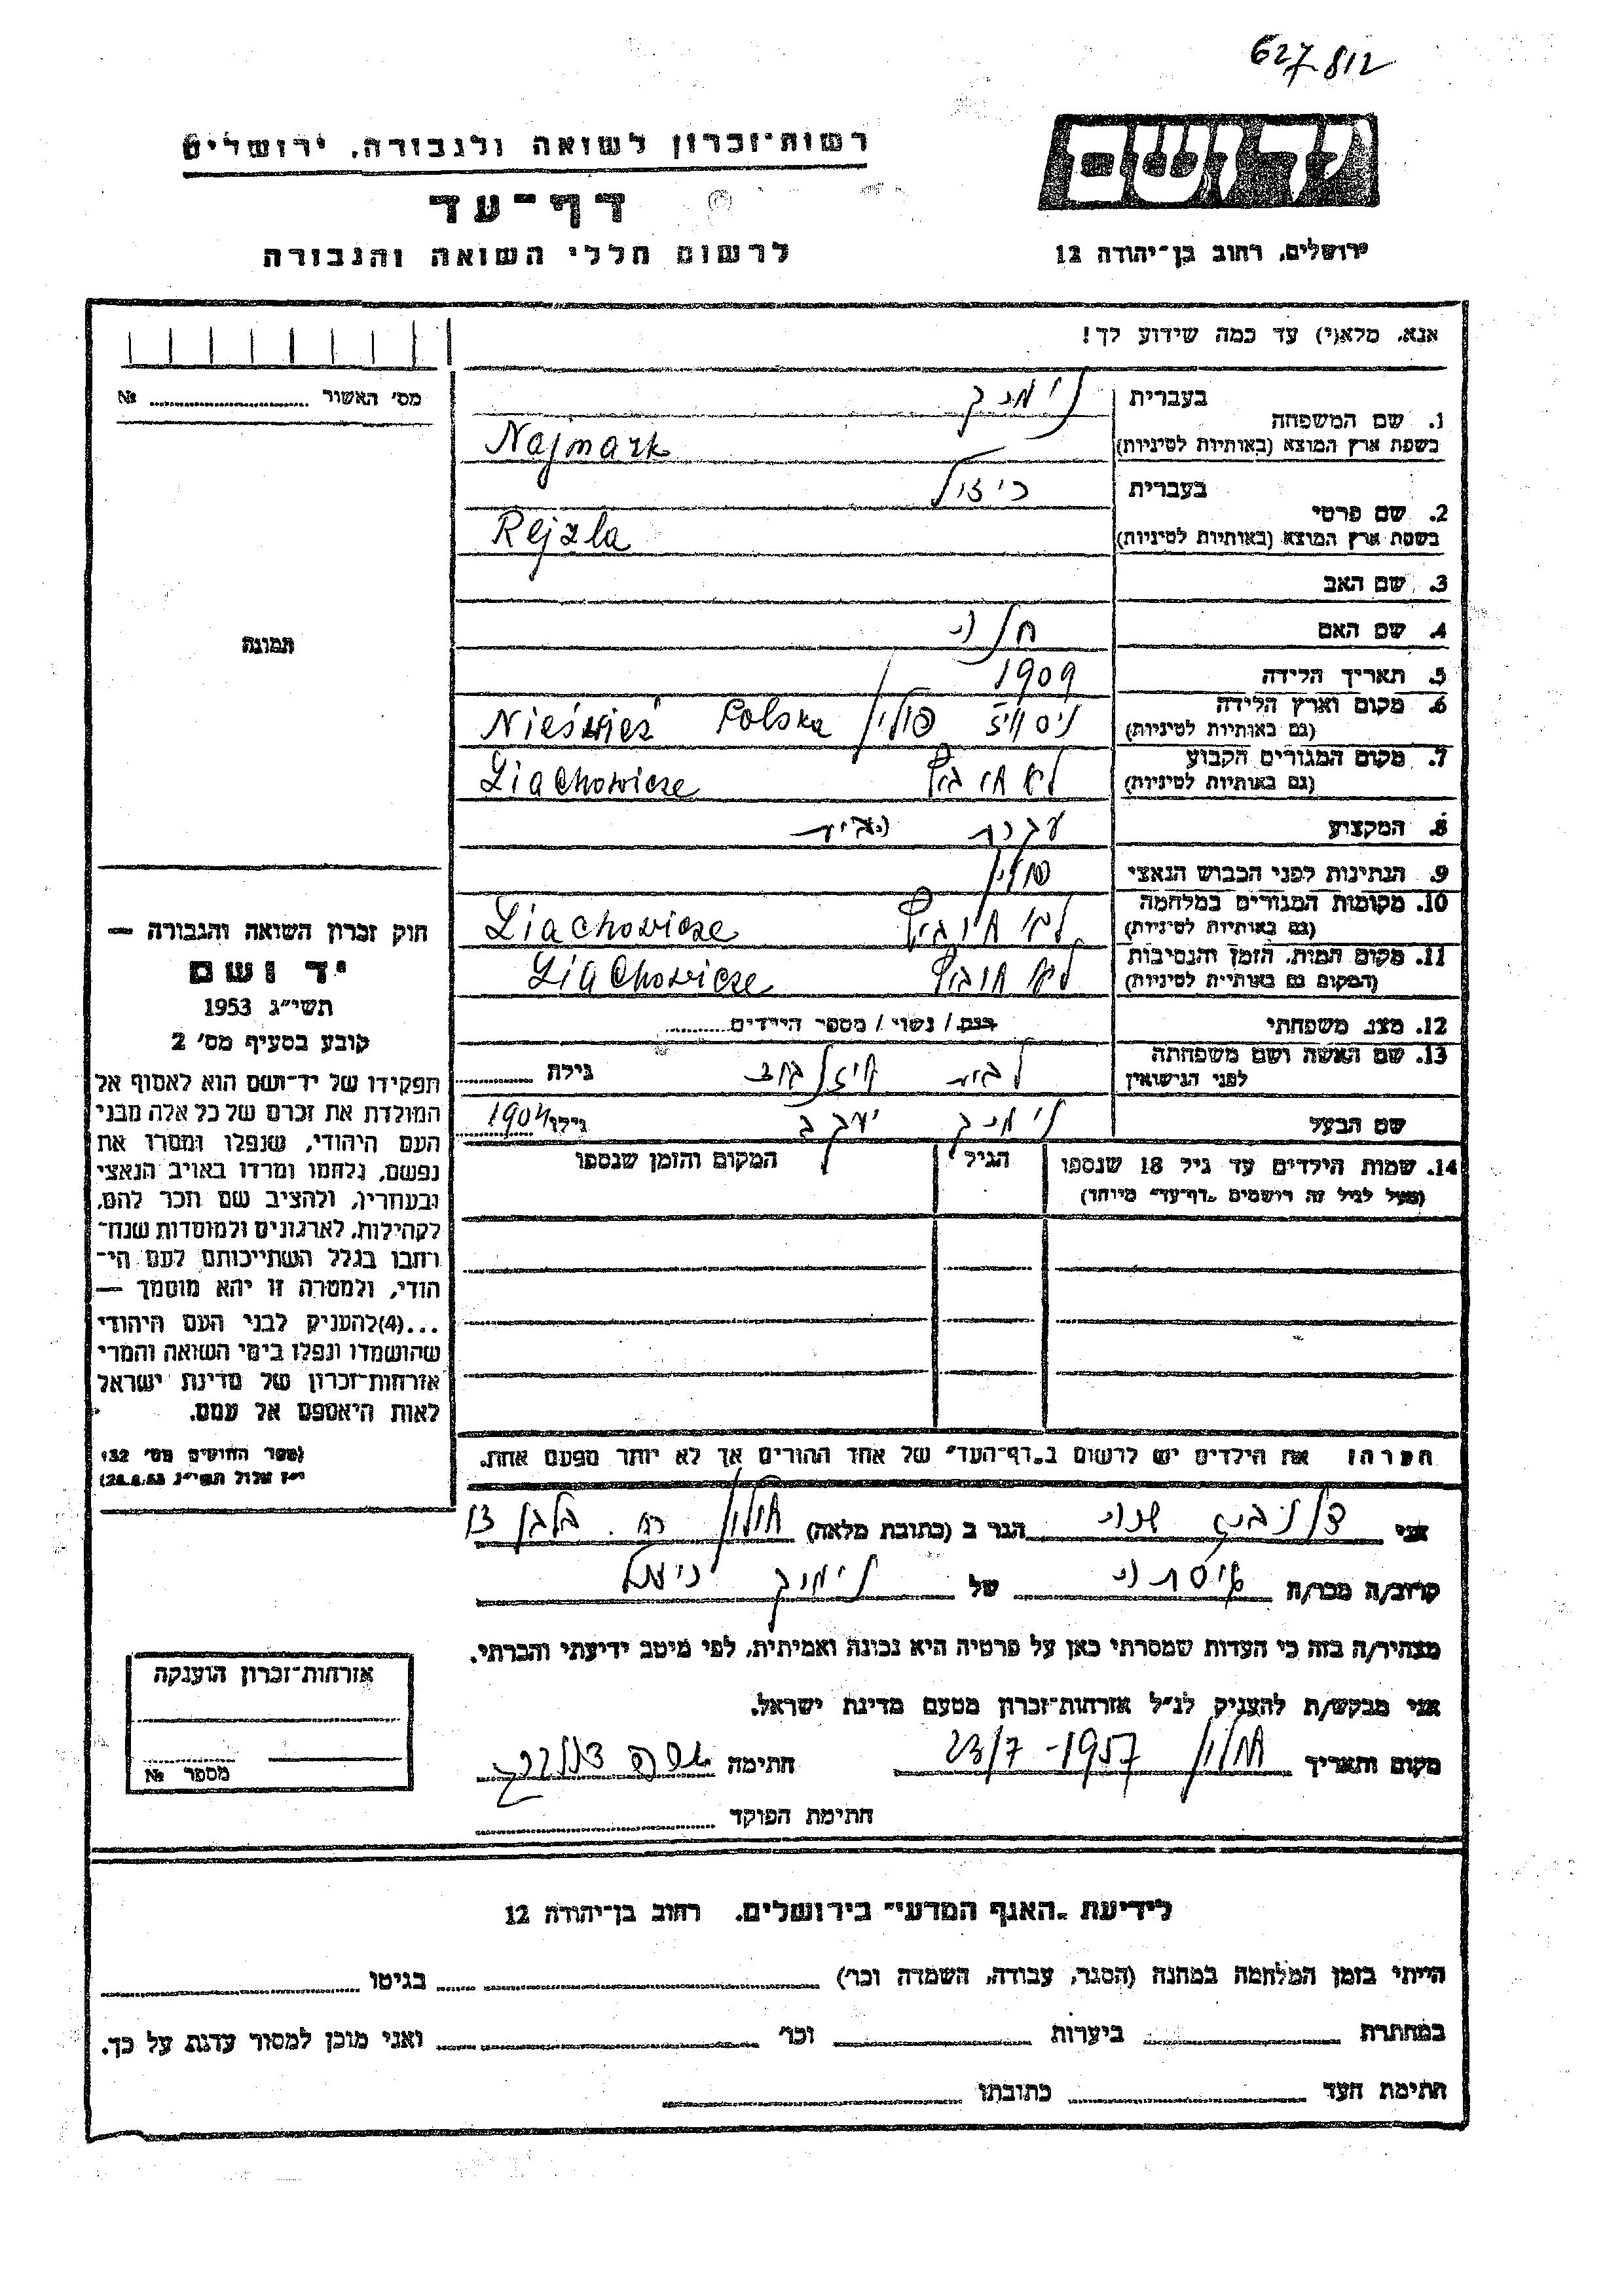 627812
ידושם
רשות־זכרון לשואה ולגבורה, ירושלים
דף־עד
לרשום חללי השואה והגבורה
ירושלים, רחוב בן־יהודה 12
אנא, מלא(י) עד כמה שידוע לך!
מס׳ האשור № 
1. שם המשפחה בעברית נימרק
בשפת ארץ המוצא (באותיות לטיניות) Najmark
2. שם פרטי בעברית ריזול
בשפת ארץ המוצא (באותיות לטיניות) Rejzla
3. שם האב
4. שם האם
תמונה
5. תאריך הלידה 1909
6. מקום וארץ הלידה (גם באותיות לטיניות) פולין Polska Nieświeś
7. מקום המגורים הקבוע (גם באותיות לטיניות) Liachowicze
8. המקצוע
9. הנתינות לפני הכבוש הנאצי פולין
10. מקומות המגורים במלחמה (גם באותיות לטיניות) Liachowicze
11. מקום המות, הזמן והנסיבות (המקום גם באותיות לטיניות) Liachowicze
12. מצב משפחתי רווק / נשוי / מספר הילדים
13. שם האשה ושם משפחתה לפני הנישואין גילה
שם הבעל נימרק יעקב גילו 1904
14. שמות הילדים עד גיל 18 שנספו הגיל המקום והזמן שנספו
(מעל לגיל זה רושמים „דף־עד״ מיוחד)
חוק זכרון השואה והגבורה —
יד ושם
תשי״ג 1953
קובע בסעיף מס׳ 2
תפקידו של יד־ושם הוא לאסוף אל
המולדת את זכרם של כל אלה מבני
העם היהודי, שנפלו ומסרו את
נפשם, נלחמו ומרדו באויב הנאצי
ובעוזריו, ולהציב שם וזכר להם,
לקהילות, לארגונים ולמוסדות שנח־
רבו בגלל השתייכותם לעם הי־
הודי, ולמטרה זו יהא מוסמך —
...(4)להעניק לבני העם היהודי
שהושמדו ונפלו בימי השואה והמרי
אזרחות־זכרון של מדינת ישראל
לאות היאספם אל עמם.
(ספר החוקים מס׳ 132,
י״ז אלול תשי״ג 28.8.53)
הערה: את הילדים יש לרשום ב„דף־העד״ של אחד ההורים אך לא יותר מפעם אחת.
אני הגר ב (כתובת מלאה) חולון רח.
קרוב/ה מכר/ה של נימרק
מצהיר/ה בזה כי העדות שמסרתי כאן על פרטיה היא נכונה ואמיתית, לפי מיטב ידיעתי והכרתי.
אני מבקש/ת להעניק לנ״ל אזרחות־זכרון מטעם מדינת ישראל.
מקום ותאריך חולון 23/7-1957 חתימה
חתימת הפוקד
אזרחות־זכרון הוענקה
מספר №
לידיעת „האגף המדעי״ בירושלים, רחוב בן־יהודה 12
הייתי בזמן המלחמה במחנה (הסגר, עבודה, השמדה וכו׳) בגיטו
במחתרת ביערות וכו׳ ואני מוכן למסור עדות על כך.
חתימת העד כתובתו